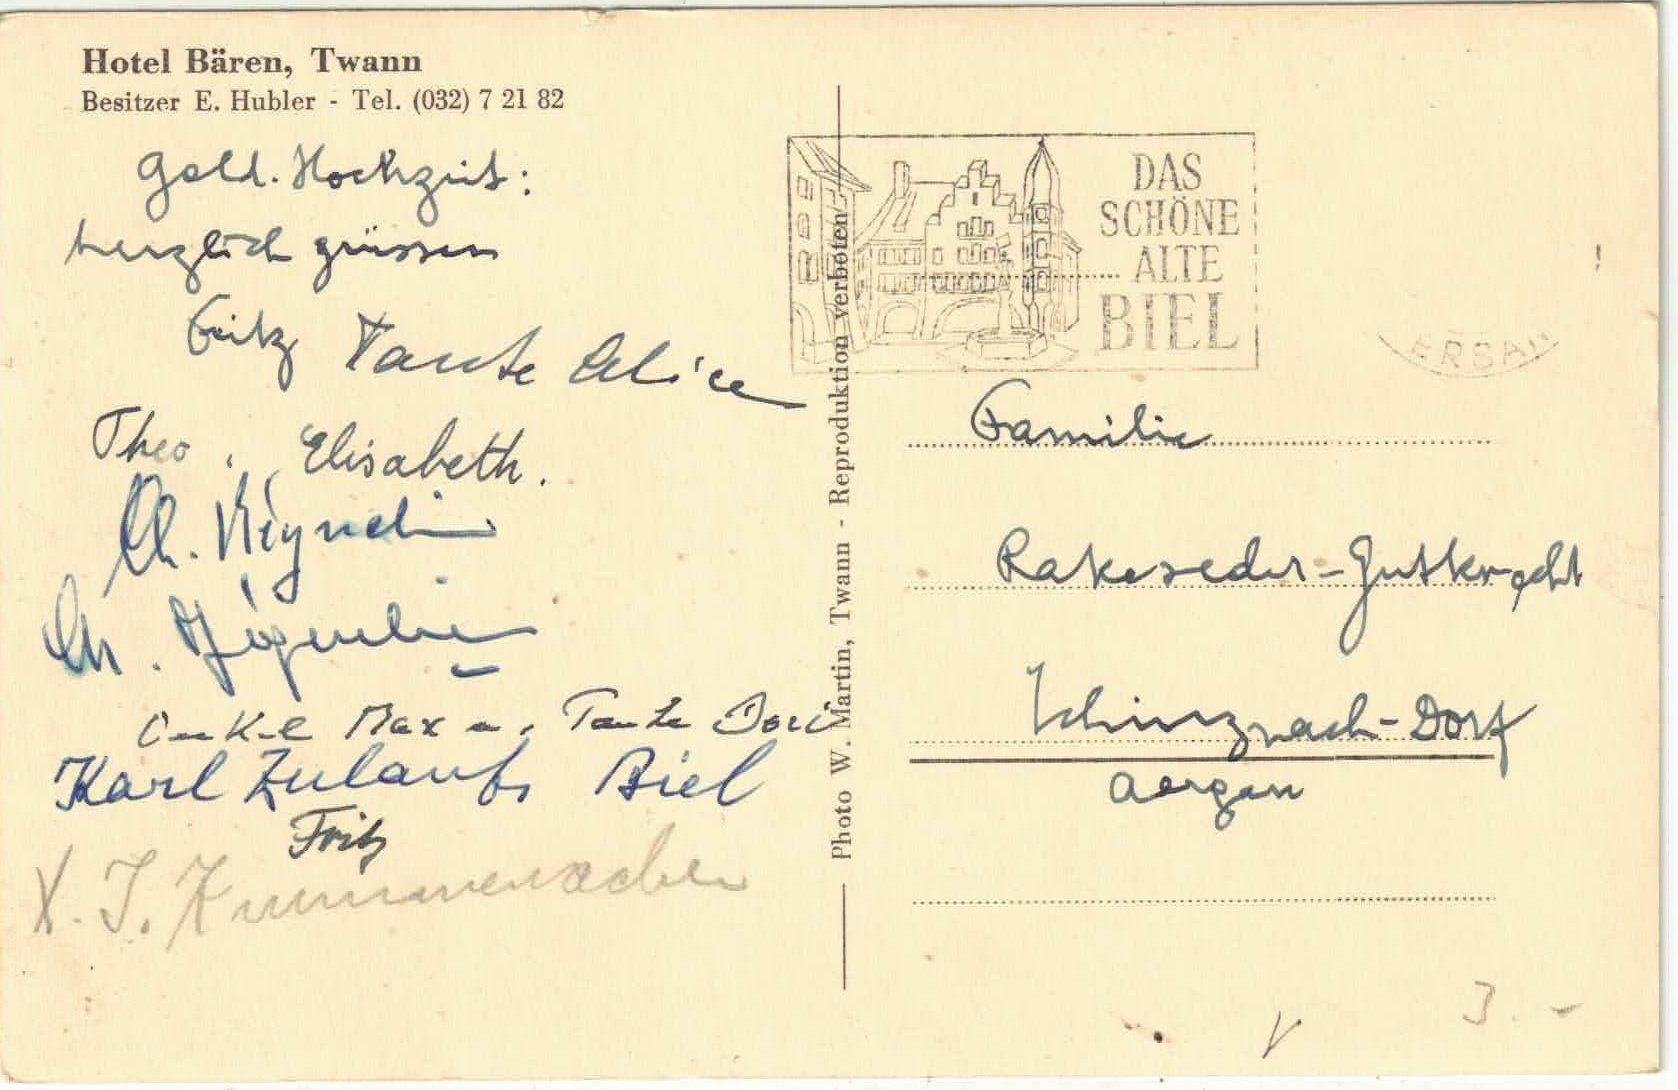 Hotel Bären, Twann
Besitzer E. Hubler - Tel. (032) 7 21 82
Gold. Hochzeit:
herzlich grüssen
Fritz Tante Alice
Theo, Elisabeth.
Ch.
Ch.
Onkel Max u. Tante Dori
Karl Zulauf, Biel
Fritz
DAS
SCHÖNE
ALTE
BIEL
ERSAN
Photo W. Martin, Twann - Reproduktion verboten
Familie
Rakeseder-Gutknecht
Schinznach-Dorf
Aargau
3.-